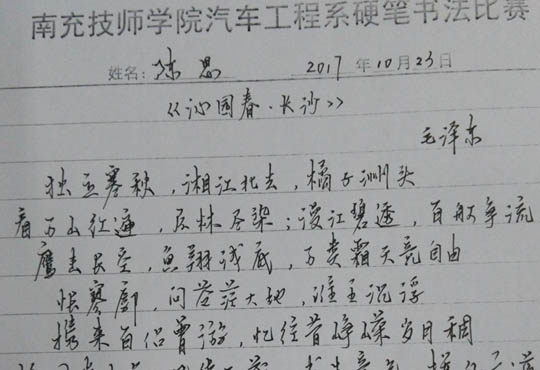 南充技师学院汽车工程系硬笔书法比赛
姓名：陈思 2017年10月23日
《沁园春·长沙》
毛泽东
独立寒秋，湘江北去，橘子洲头
看万山红遍，层林尽染；漫江碧透，百舸争流
鹰击长空，鱼翔浅底，万类霜天竞自由
怅寥廓，问苍茫大地，谁主沉浮
携来百侣曾游，忆往昔峥嵘岁月稠